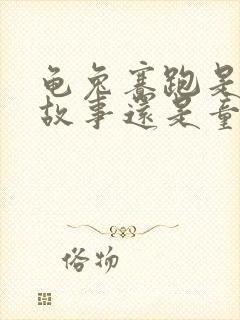 龟兔赛跑是
故事还是童
俗物